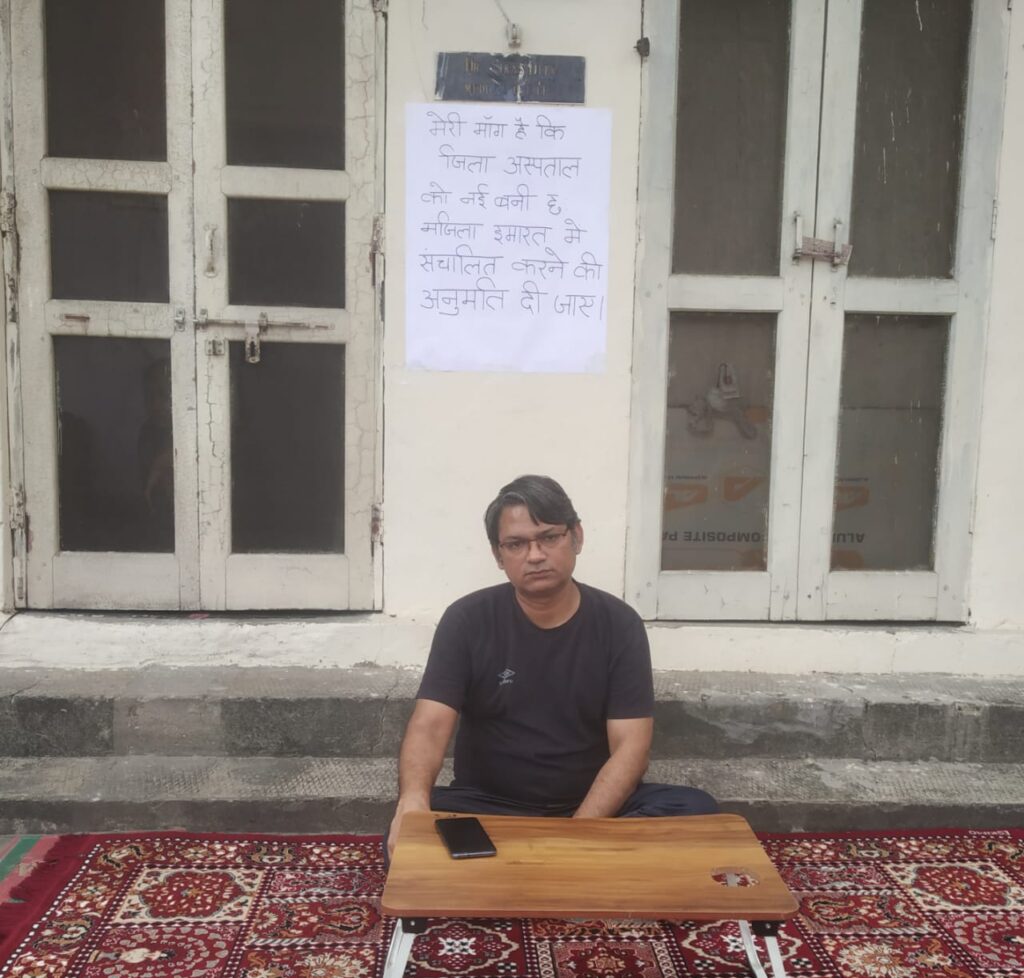 DR.
मेरी माँग है कि
जिला अस्पताल
को नई बनी छ
मंजिला इमारत मे
संचालित करने की
अनुमति दी जाए।
COMPOSITE PA
ALU